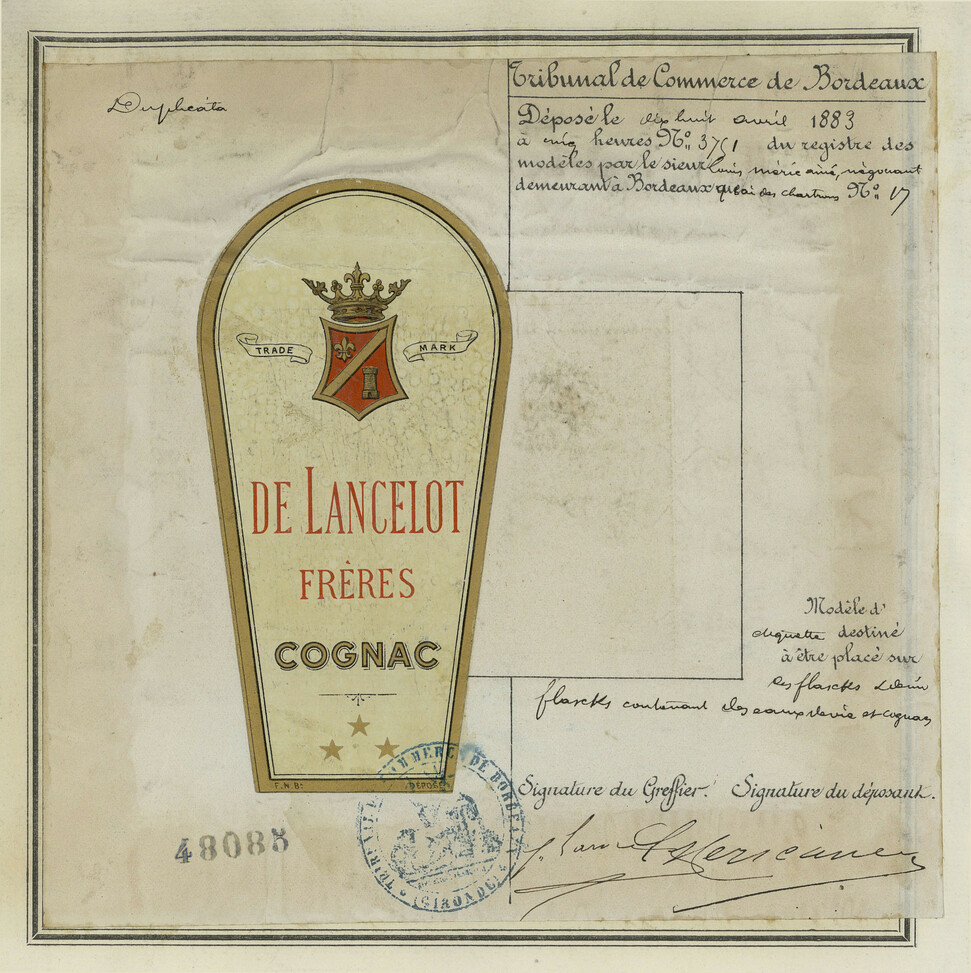 Duplicata
Tribunal de Commerce de Bordeaux
Déposé le dix huit avril 1883
à cinq heures Nº 3751 du registre des
modèles par le sieur louis méric ainé, négociant
demeurant à Bordeaux quai des chartrons Nº 17
TRADE MARK
DE LANCELOT
FRÈRES
COGNAC
F.N.B.
DÉPOSÉ
Modèle d'
étiquette destiné
à être placé sur
des flascks
flascks contenant des eaux de vie et cognac
Signature du Greffier. Signature du déposant.
TRIBUNAL DE COMMERCE DE BORDEAUX
(GIRONDE)
48085